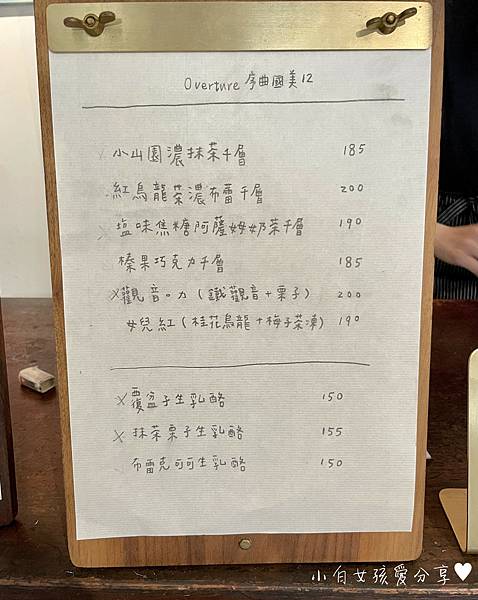 Overture 序曲國美12
小山園濃抹茶千層 185
紅烏龍茶濃布蕾千層 200
塩味焦糖阿薩姆奶茶千層 190
榛果巧克力千層 185
X觀音。力(鐵觀音+栗子) 200
女兒紅(桂花烏龍+梅子茶凍) 190
X覆盆子生乳酪 150
X抹茶栗子生乳酪 155
布雷克可可生乳酪 150
小白女孩愛分享♥